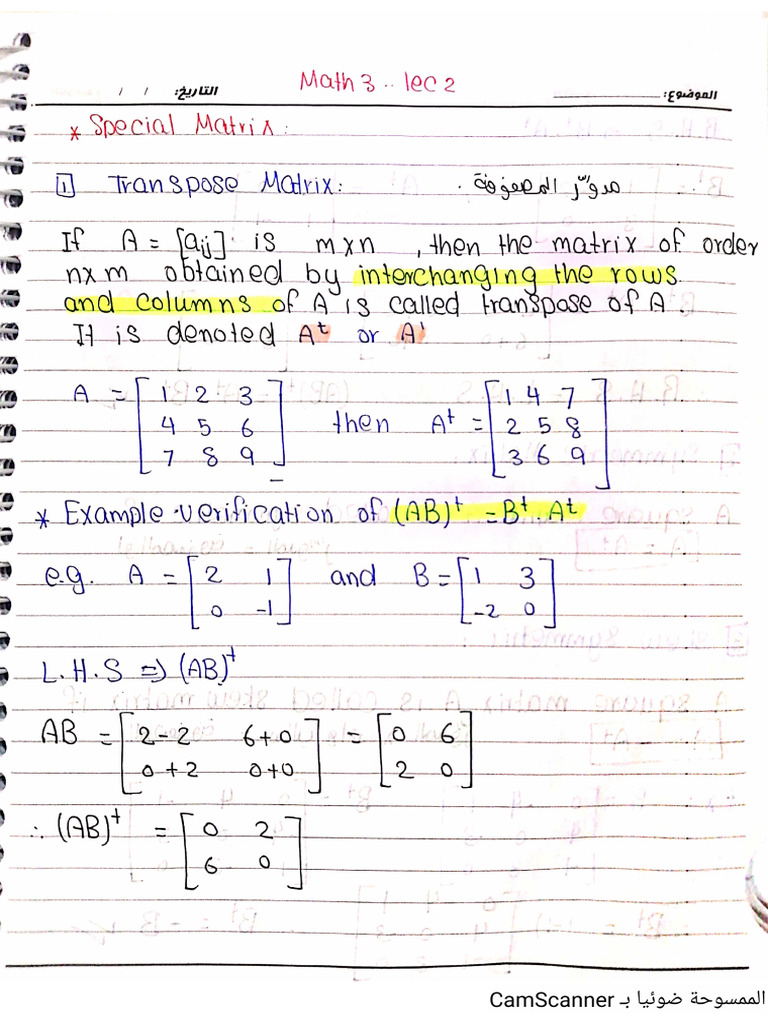 Math 3 .. lec 2
التاريخ: / /
الموضوع:
* Special Matrix:
1 Transpose Matrix: مدوّر المصفوفة.
If A = [aij] is m×n , then the matrix of order
n×m obtained by interchanging the rows
and columns of A is called transpose of A.
It is denoted Aᵗ or A'
A = [1 2 3 then Aᵗ = [1 4 7
4 5 6 2 5 8
7 8 9] 3 6 9]
* Example.verification of (AB)ᵗ = Bᵗ.Aᵗ
e.g. A = [2 1 and B = [1 3
0 -1] -2 0]
L.H.S ⇒ (AB)ᵗ
AB = [2-2 6+0 = [0 6
0+2 0+0] 2 0]
∴ (AB)ᵗ = [0 2
6 0]
الممسوحة ضوئيا بـ CamScanner